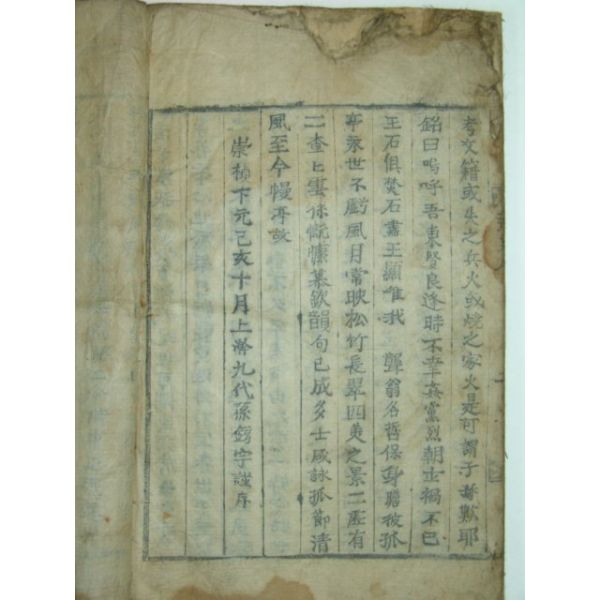 考文籍或失之兵火或燒之家火是可謂子孫歎耶
銘曰嗚呼吾東賢良逢時不幸姦黨烈朝士禍不已
王石俱焚石露王顯惟我 聾翁名哲保身瞻彼孤
亭永世不虧風月常映松竹長翠四美之景二匹有
二查上雲徐慨慷慕欽韻句已成多士咸詠孤節清
風至今慢再故
崇禎下元己亥十月上澣九代孫 宇謹序